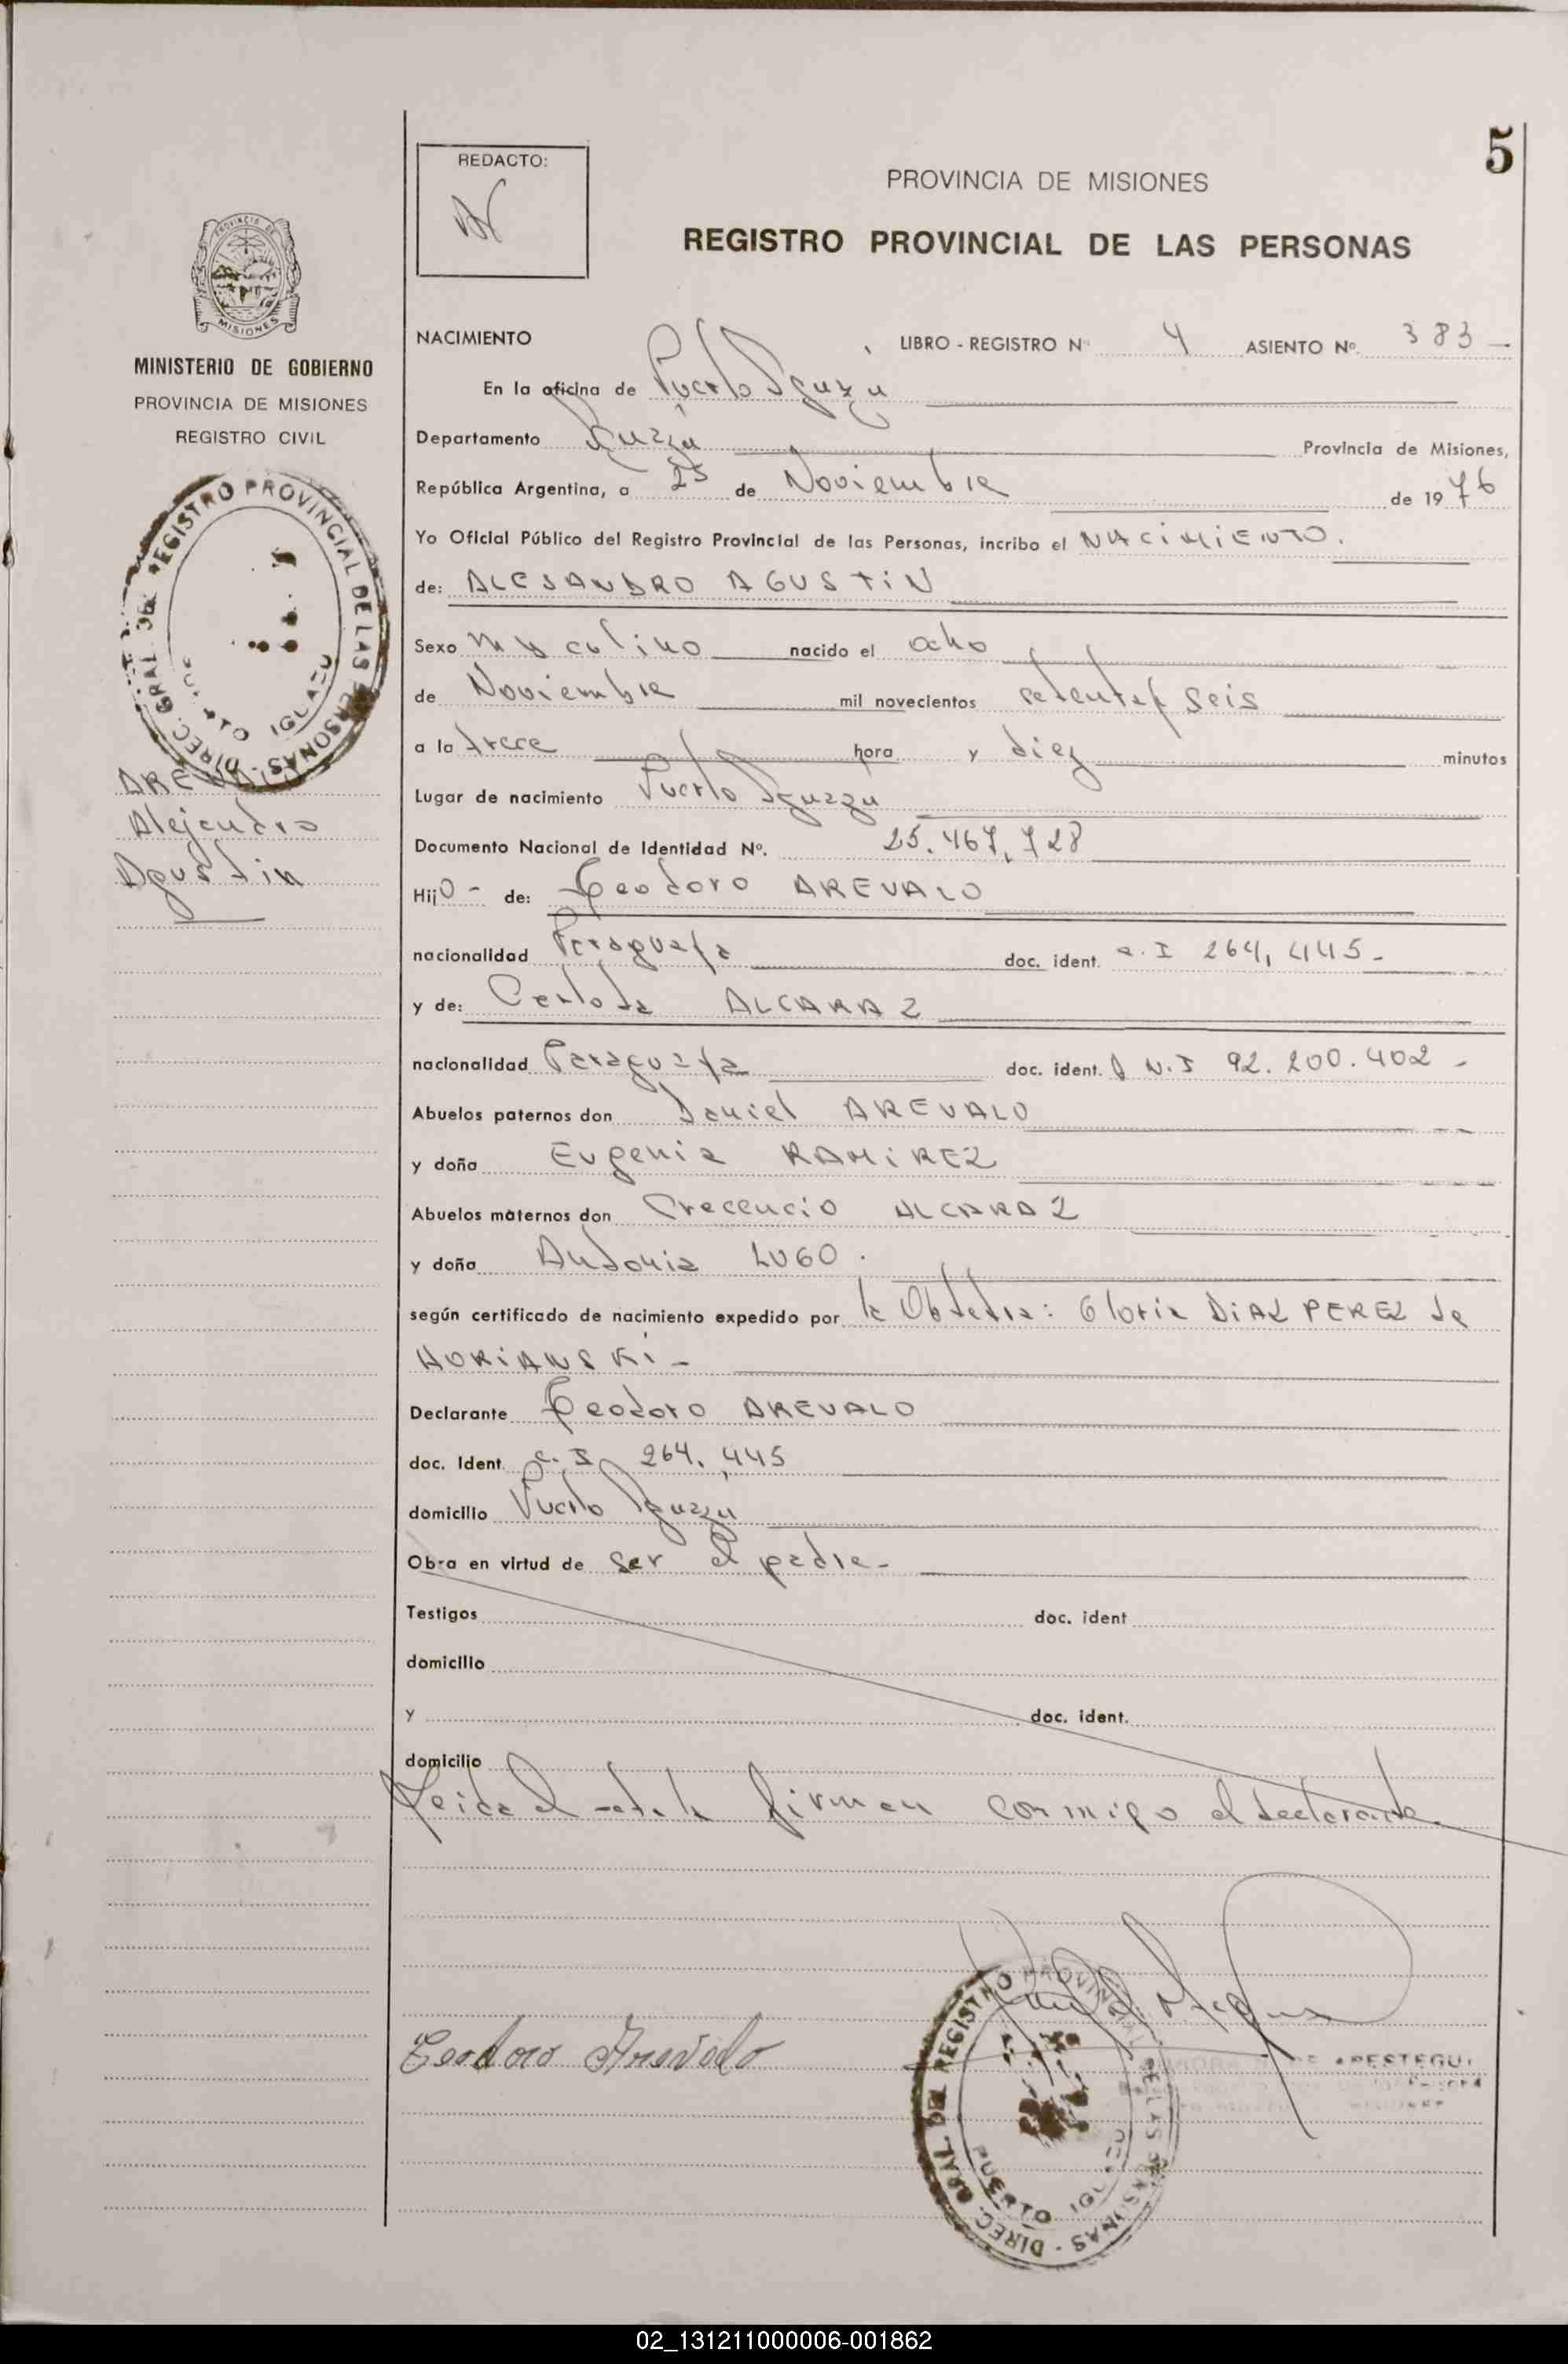 5
REDACTO:
PROVINCIA DE MISIONES
REGISTRO PROVINCIAL DE LAS PERSONAS
PROVINCIA DE
MISIONES
MINISTERIO DE GOBIERNO
PROVINCIA DE MISIONES
REGISTRO CIVIL
DIREC. GRAL. DEL REGISTRO PROVINCIAL DE LAS PERSONAS
PTO IGUAZU
AREVALO
Alejandro
Agustin
NACIMIENTO LIBRO - REGISTRO Nº 4 ASIENTO Nº. 383 -
En la oficina de Puerto Iguazu
Departamento Iguazu Provincia de Misiones,
República Argentina, a 25 de Noviembre de 1976
Yo Oficial Público del Registro Provincial de las Personas, incribo el NACIMIENTO.
de: ALEJANDRO AGUSTIN
Sexo masculino nacido el ocho
de Noviembre mil novecientos setenta y seis
a la trece hora y diez minutos
Lugar de nacimiento Puerto Iguazu
Documento Nacional de Identidad Nº. 25.467.728
Hijo - de: Teodoro AREVALO
nacionalidad Paraguaya doc. ident. c. I 264,445 -
y de: Carlota ALCARAZ
nacionalidad Paraguaya doc. ident. D N.I 92.200.402 -
Abuelos paternos don Daniel AREVALO
y doña Eugenia RAMIREZ
Abuelos maternos don Crecencio ALCARAZ
y doña Antonia LUGO.
según certificado de nacimiento expedido por la Obstetra: Gloria DIAZ PEREZ de
HORIANSKI -
Declarante Teodoro AREVALO
doc. Ident. c. I 264.445
domicilio Puerto Iguazu
Obra en virtud de ser el padre -
Testigos doc. ident
domicilio
y doc. ident.
domicilio
Leida el acta la firman conmigo el declarante
Teodoro Arevalo
DIREC. GRAL. DEL REGISTRO PROVINCIAL DE LAS PERSONAS
PUERTO IGUAZU
APESTEGUI
02_131211000006-001862